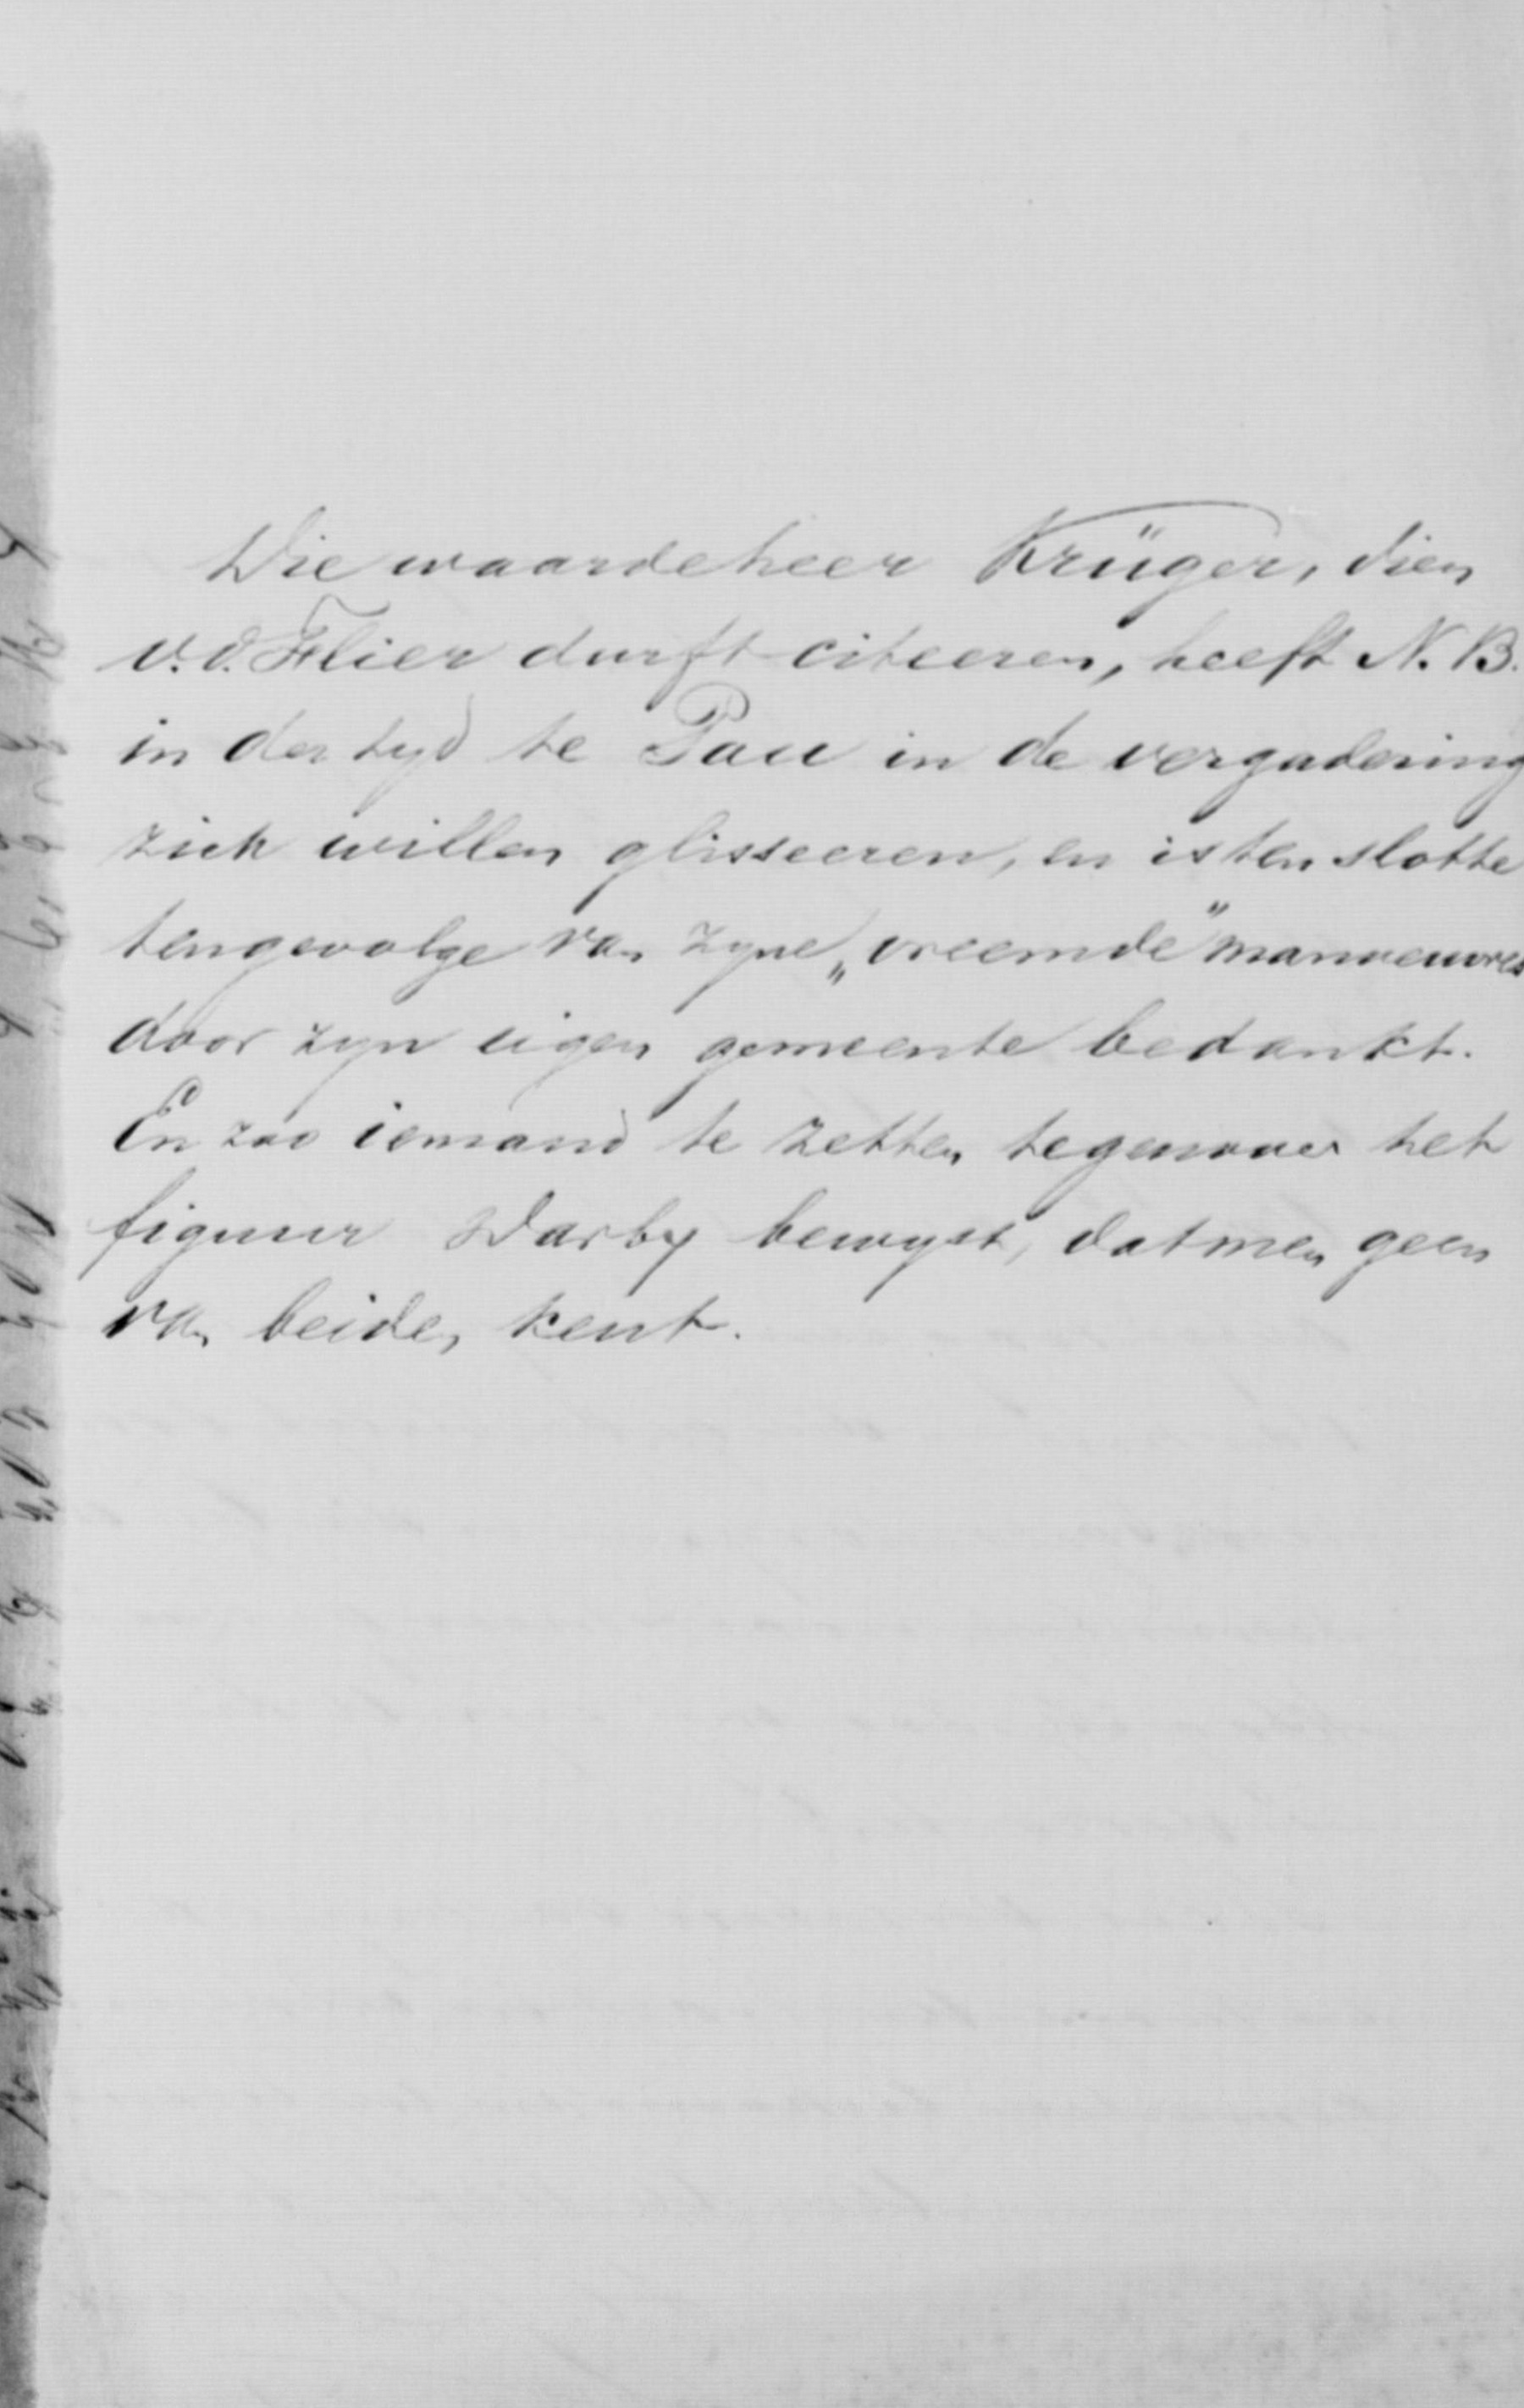 Die waarde heer Krüger, dien
v. d. Flier durft citeeren, heeft N.B.
in der tyd te Pau in de vergadering
zich willen glisseeren, en is ten slotte
tengevolge van zyne „vreemde" manoeuvres
door zyn eigen gemeente bedankt.
En zoo iemand te zetten tegenover het
figuur Darby bewyst, dat men geen
van beiden kent.